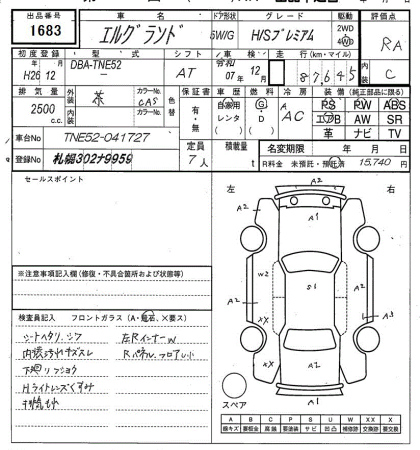 出品番号 車名 ドア形状 グレード 駆動 評価点
1683 エルグランド 5W/G H/Sプレミアム 2WD 4WD RA
初度登録 型式 シフト 車検 走行(km・マイル) 内装
H26 12 DBA-TNE52 AT 令和 07年 12月 87645 C
排気量 外装 茶 カラーNo. CAS 色替 保証書 車歴 燃料 冷房 装備(純正部品に限る)
2500 c.c. 内装 カラーNo. 有・無 自家用 レンタ G・D AC PS PW ABS
エアB AW SR
革 ナビ TV
車台No TNE52-041727 定員 7人 積載量 t 名変期限 年 月 日
登録No 札幌302ナ9959 R料金 未預託・預託済 15,740 円
セールスポイント
左 右
A2 A2 A1
A2 W2 S1 A2 A3
XX XX A2 A2
※注意事項記入欄(修復・不具合箇所および状態等)
検査員記入 フロントガラス(A・飛石、×要ス)
シートヘタリ、シワ 左Rインナーw
内張汚れキズスレ Rパネル、フロア
下廻りフショク
Hライトレンズくすみ
スペア
A B C P S U W X XX X
線キズ 要板金 腐蝕 要塗装 サビ 凹凸 補修跡 交換跡 要交換